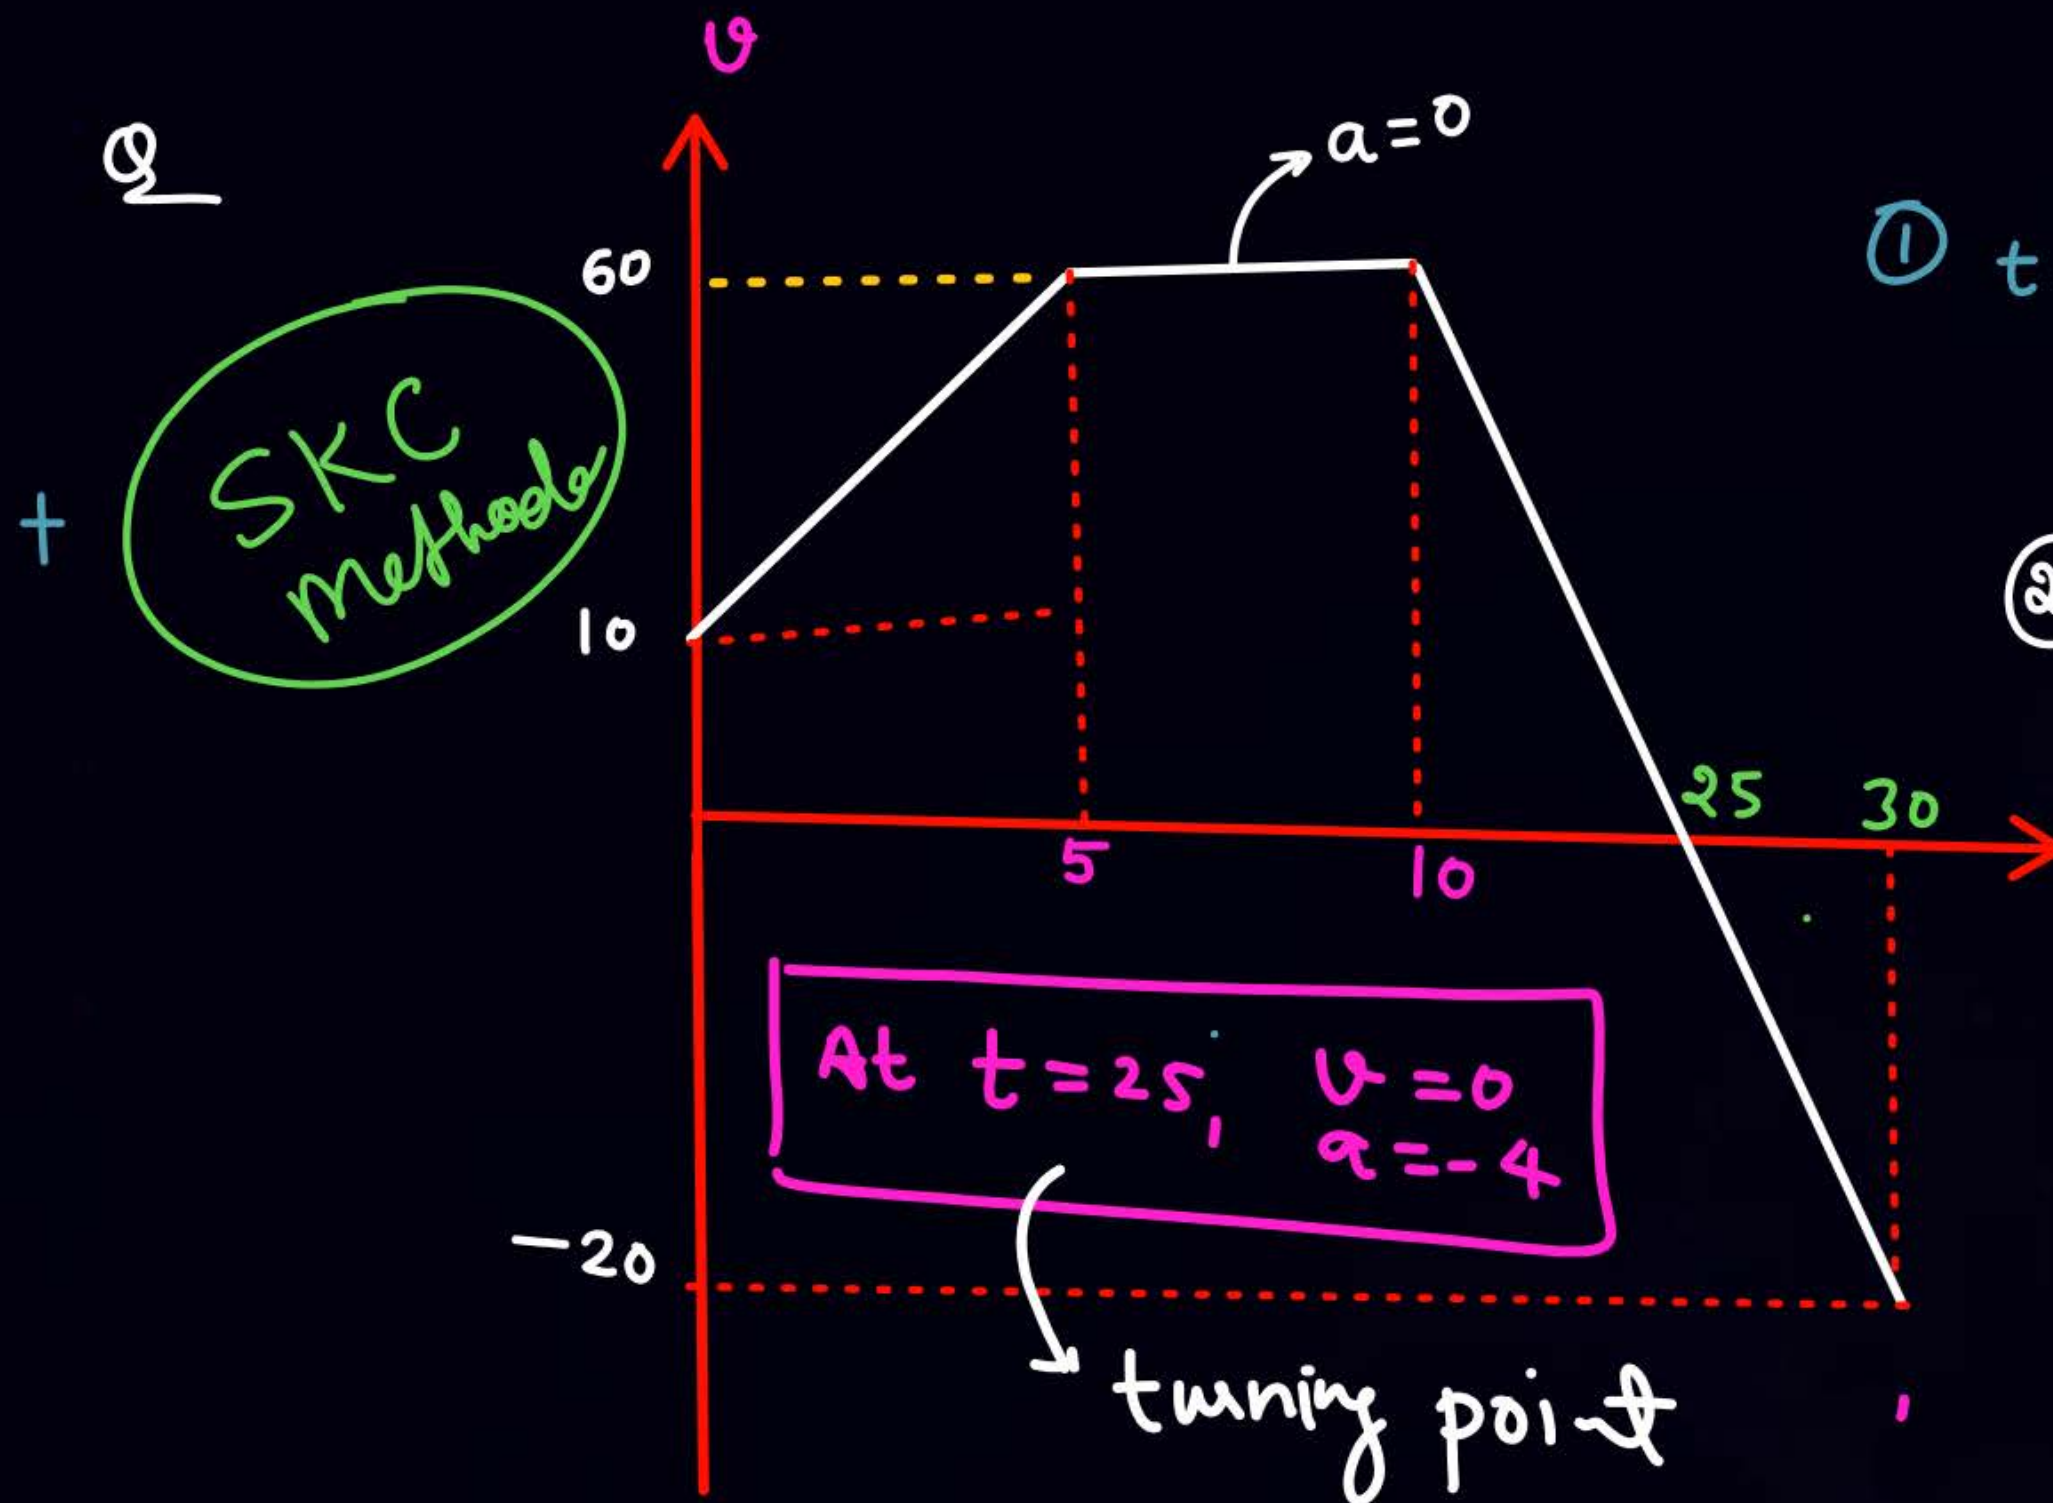 v
Q
a=0
60
① t
SKC
Methode
+
②
10
25
30
5
10
At t=25, v=0
a=-4
-20
turning point